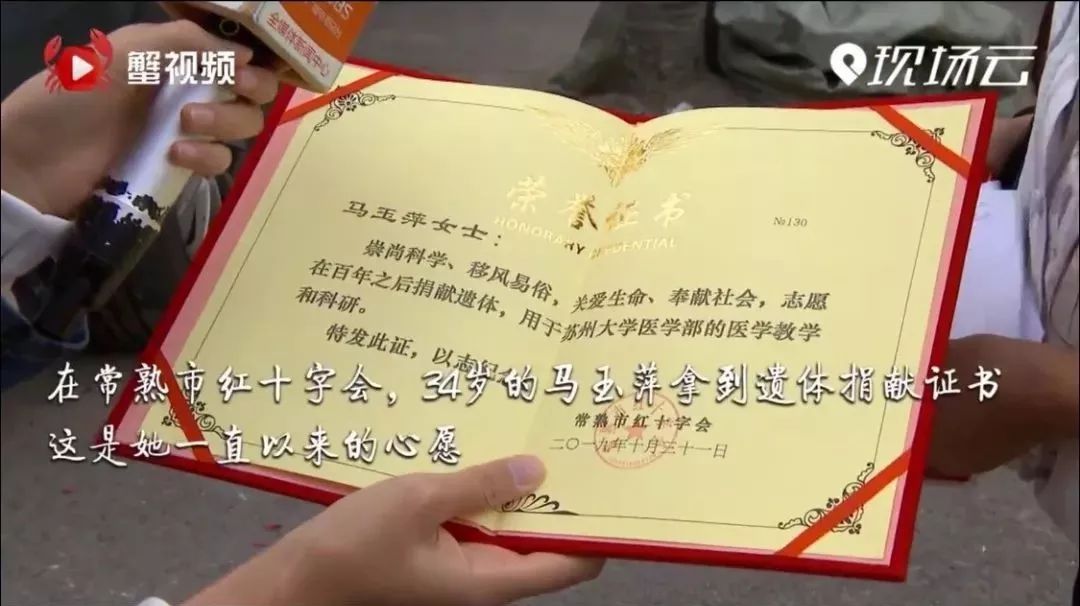 蟹视频
现场云
荣誉证书
HONORARY CREDENTIAL
№130
马玉萍女士：
崇尚科学、移风易俗，关爱生命、奉献社会，志愿
在百年之后捐献遗体，用于苏州大学医学部的医学教学
和科研。
特发此证，以志纪
在常熟市红十字会，34岁的马玉萍拿到遗体捐献证书
常熟市红十字会
这是她一直以来的心愿
二〇一九年十月三十一日